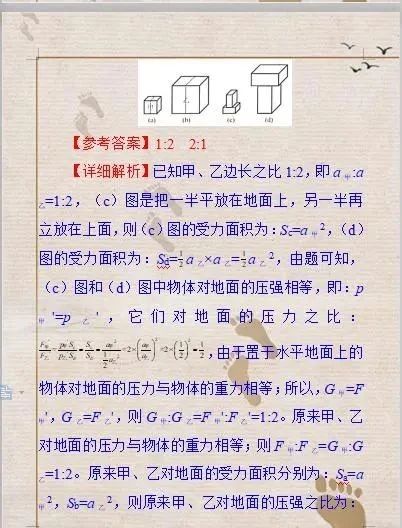 甲 乙
(a) (b) (c) (d)
【参考答案】1:2 2:1
【详细解析】已知甲、乙边长之比1:2,即a甲:a
乙=1:2,(c)图是把一半平放在地面上,另一半再
立放在上面,则(c)图的受力面积为:Sc=a甲²,(d)
图的受力面积为:Sd=½a乙×a乙=½a乙²,由题可知,
(c)图和(d)图中物体对地面的压强相等,即:p
甲'=p乙',它们对地面的压力之比:
,由于置于水平地面上的
物体对地面的压力与物体的重力相等;所以,G甲=F
甲',G乙=F乙',则G甲:G乙=F甲':F乙'=1:2。原来甲、乙
对地面的压力与物体的重力相等;则F甲:F乙=G甲:G
乙=1:2。原来甲、乙对地面的受力面积分别为:Sa=a
甲²,Sb=a乙²,则原来甲、乙对地面的压强之比为: